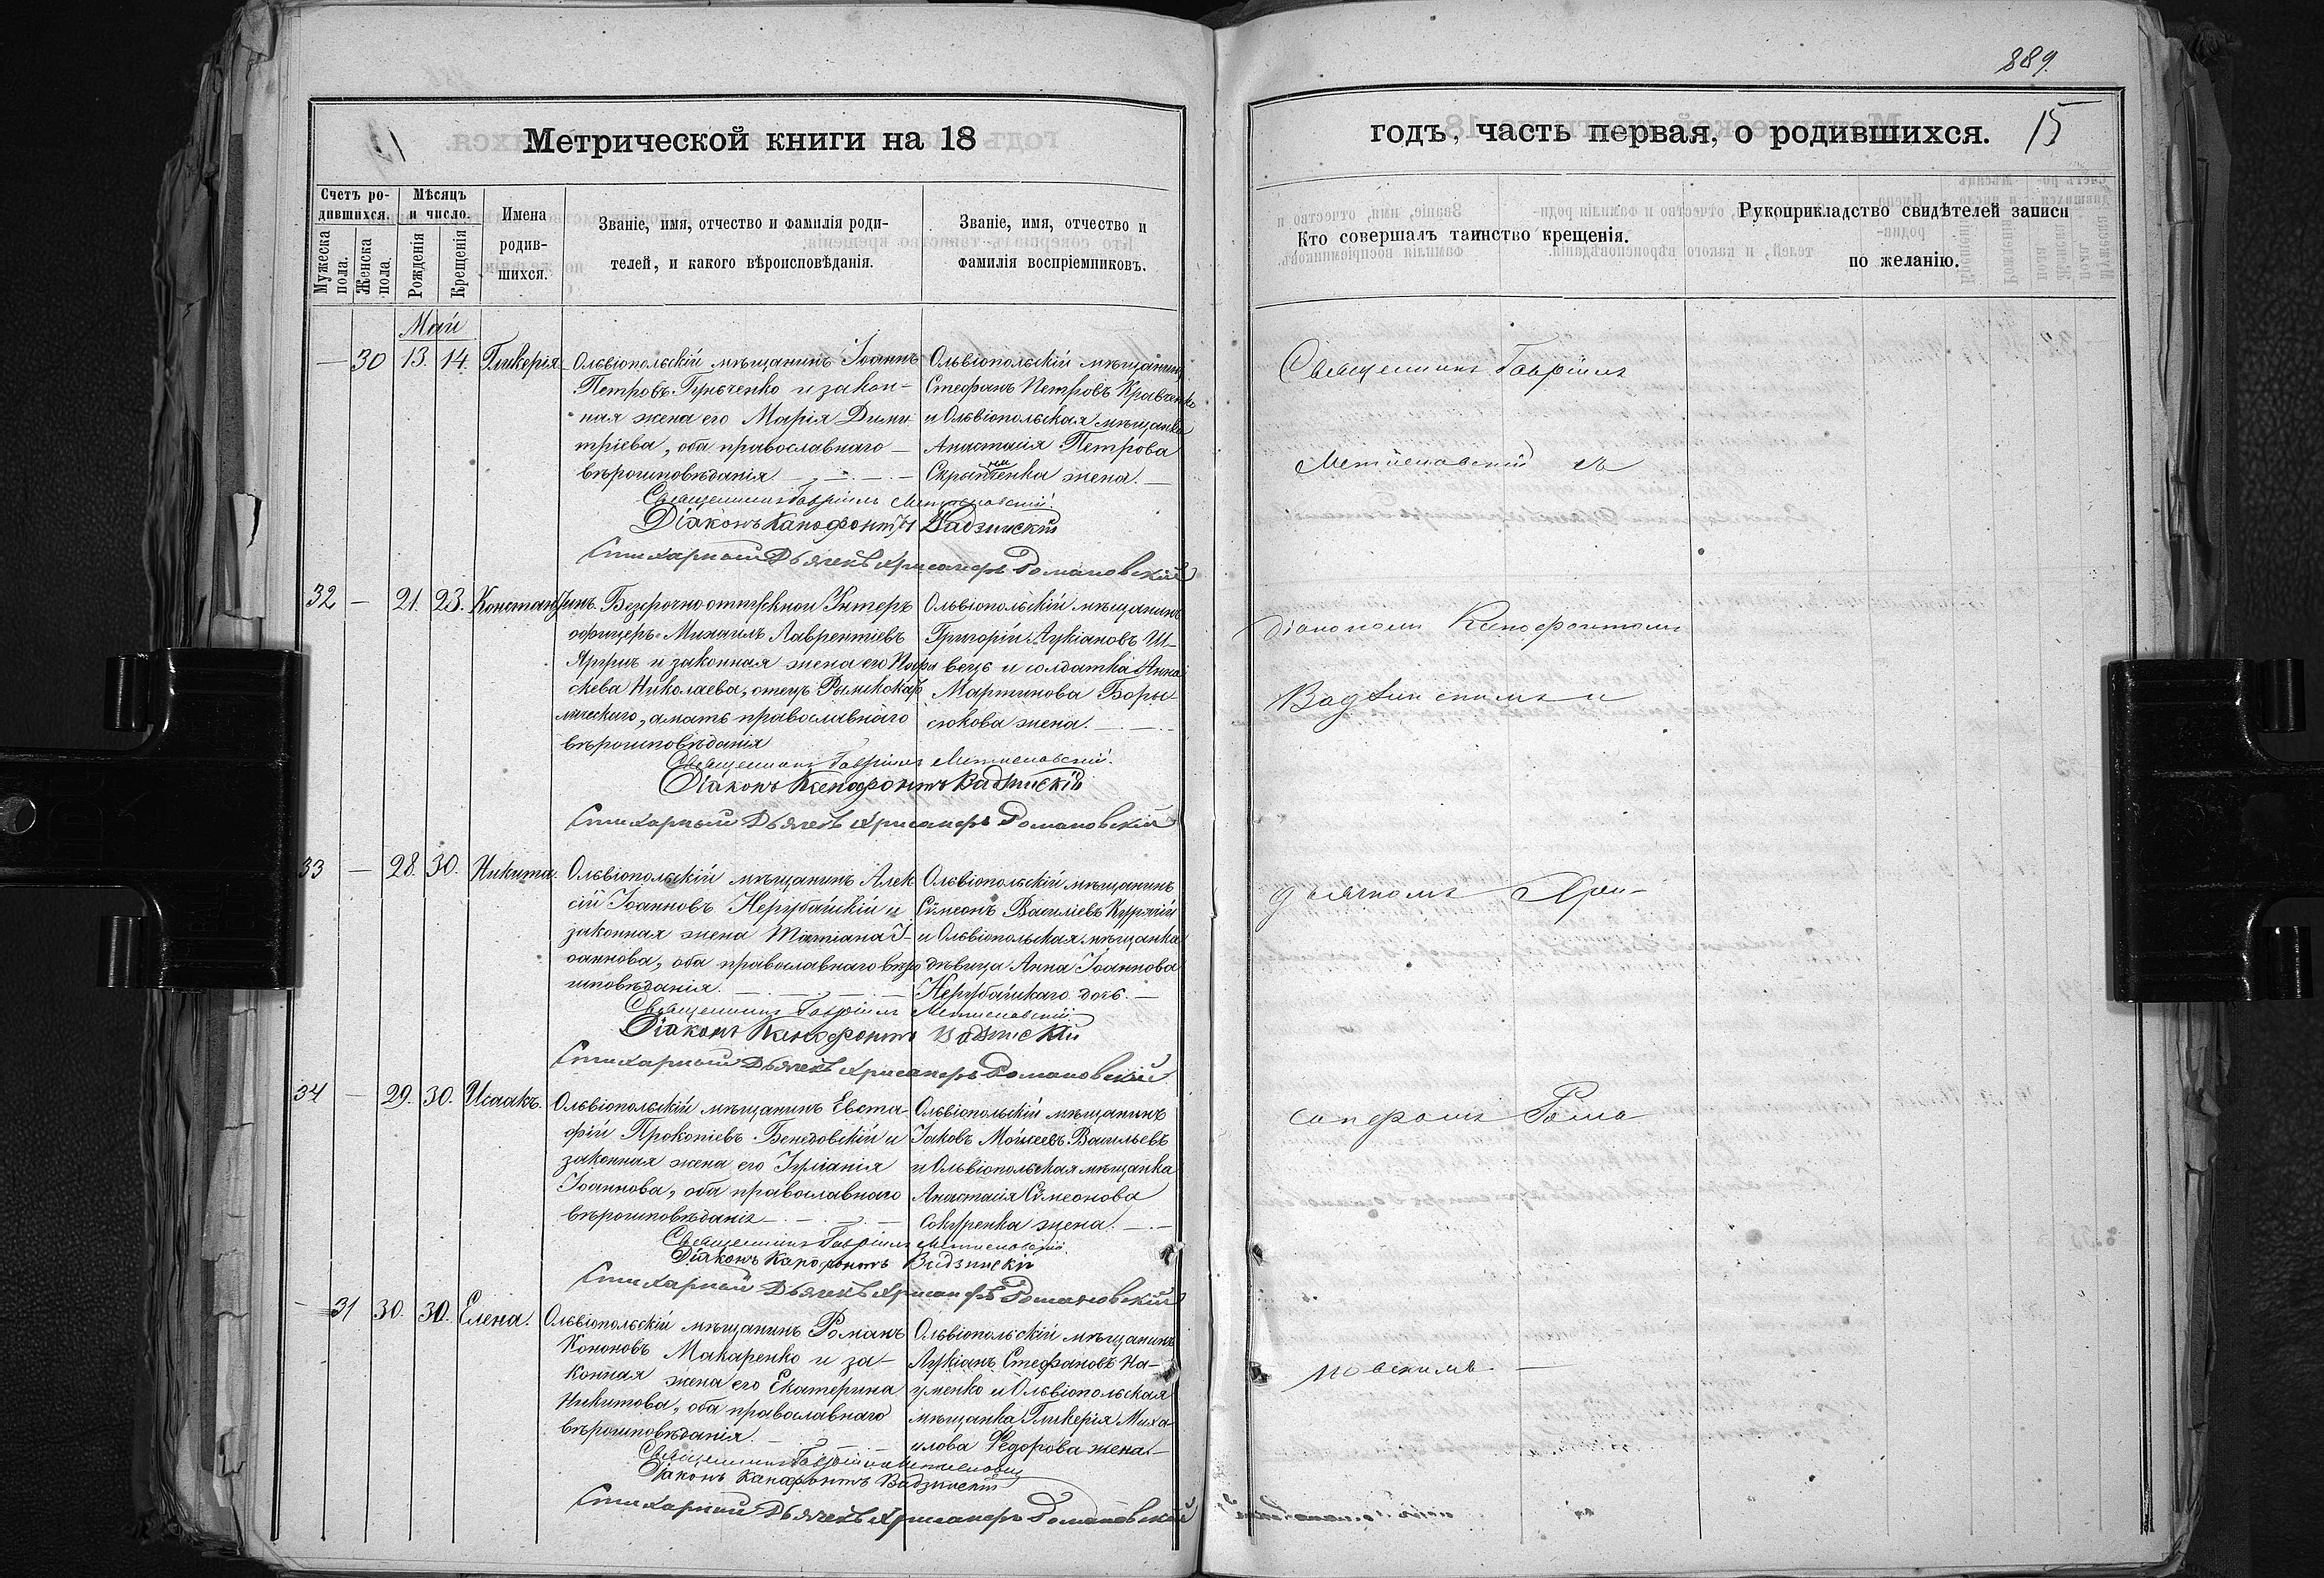 889.
Метрической книги на 18
годъ, часть первая, о родившихся. 15
Счетъ родившихся.
Мужеска пола.
Женска пола.
Мѣсяцъ и число.
Рожденія
Крещенія
Имена родив-
шихся.
Званіе, имя, отчество и фамилія роди-
телей, и какого вѣроисповѣданія.
Званіе, имя, отчество и
фамилія воспріемниковъ.
Кто совершалъ таинство крещенія.
Рукоприкладство свидѣтелей записи
по желанію.
Май
— 30 13. 14. Гликерія
Ольвіопольскій мѣщанинъ Іоаннъ
Петровъ и закон-
ная жена его Марія Дими
тріева, оба православнаго —
вѣроисповѣданія
Ольвіопольскій мѣщанинъ
Стефанъ Петровъ Кравченко
и Ольвіопольская мѣщанка
Анастасія Петрова
жена. —
Священникъ Гавріилъ
Діаконъ Ксенофонтъ
Стихарный Дьячекъ Хрисанфъ Романовскій
32 — 21. 23. Константинъ.
Безсрочно отпускной Унтеръ
офицеръ Михаилъ Лаврентіевъ
и законная жена его Пара
скева Николаева, отецъ Римскокаѳ
лическаго, а мать православнаго
вѣроисповѣданія
Ольвіопольскій мѣщанинъ
Григорій Лукіановъ Ш-
вецъ и солдатка Анна
Мартинова Бары-
сюкова жена.
Священникъ Гавріилъ
Діаконъ Ксенофонтъ
Стихарный Дьячекъ Хрисанфъ Романовскій
33 — 28. 30. Никита.
Ольвіопольскій мѣщанинъ Алек
сій Іоанновъ Нерубайскій и
законная жена Татіана І-
оаннова, оба православнаго вѣро
исповѣданія.
Ольвіопольскій мѣщанинъ
Сѵмеонъ Василіевъ Курячій
и Ольвіопольская мѣщанка
дѣвица Анна Іоаннова
Нерубайскаго дочь. —
Священникъ Гавріилъ
Діаконъ Ксенофонтъ
Стихарный Дьячекъ Хрисанфъ Романовскій
34 — 29. 30. Исаакъ.
Ольвіопольскій мѣщанинъ Евста
фій Прокопіевъ и
законная жена его Іуліанія
Іоаннова, оба православнаго
вѣроисповѣданія
Ольвіопольскій мѣщанинъ
Іаковъ Моѵсеевъ Васильевъ
и Ольвіопольская мѣщанка
Анастасія Сѵмеонова
Сокуренка жена. —
Священникъ Гавріилъ
Діаконъ Ксенофонтъ
Стихарный Дьячекъ Хрисанфъ Романовскій
— 31 30. 30. Елена.
Ольвіопольскій мѣщанинъ Романъ
Кононовъ Макаренко и за-
конная жена его Екатерина
Никитова, оба православнаго
вѣроисповѣданія.
Ольвіопольскій мѣщанинъ
Лукіанъ Стефановъ На-
уменко и Ольвіопольская
мѣщанка Гликерія Миха
илова Федорова жена. —
Священникъ Гавріилъ
Діаконъ Ксенофонтъ
Стихарный Дьячекъ Хрисанфъ Романовскій
Священникъ Гавріилъ
съ
діакономъ Ксенофонтомъ
и
дьячкомъ Хри-
санфомъ Рома
новскимъ. —